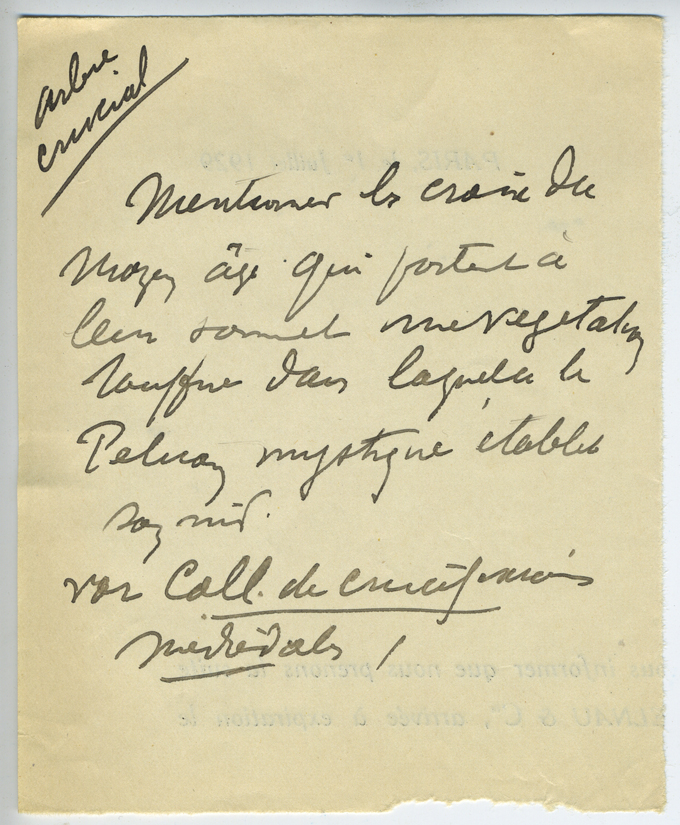 arbre
crucial
Mentionner les croix du
Moyen âge qui portent à
leur sommet une végétation
touffue dans laquelle le
Pélican mystique établit
son nid.
voir Coll. de crucifixions
médiévales !
PARIS, le 1er Juillet 1929
ous informer que nous prenons la suite
ELNAU & Cie, arrivée à expiration le